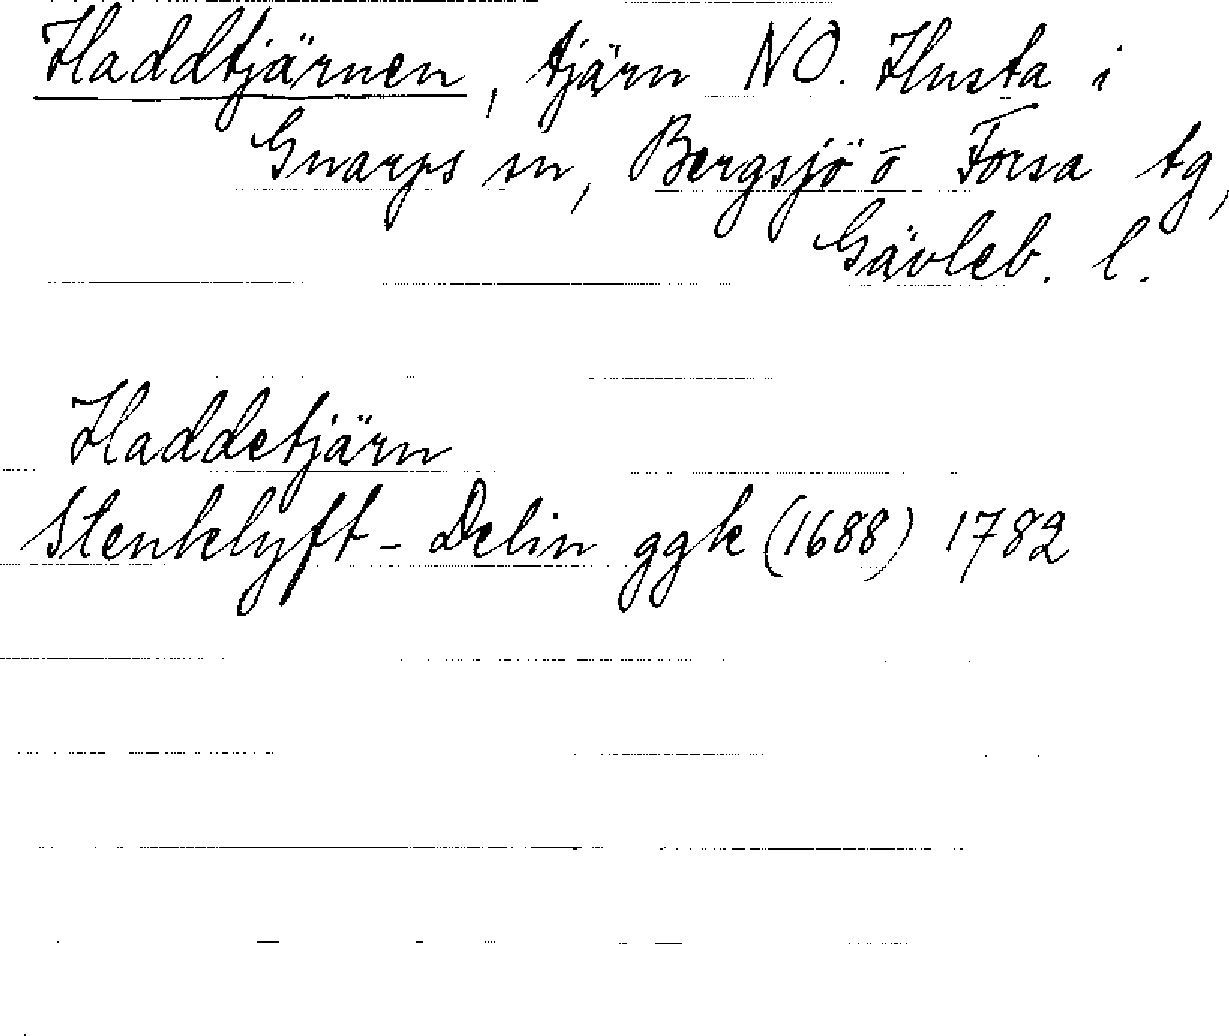 Haddtjärnen, tjärn NO. Husta i
Gnarps sn, Bergsjö o Forsa tg,
Gävleb. l.
Haddetjärn
Stenklyft - Delin ggk (1688) 1782